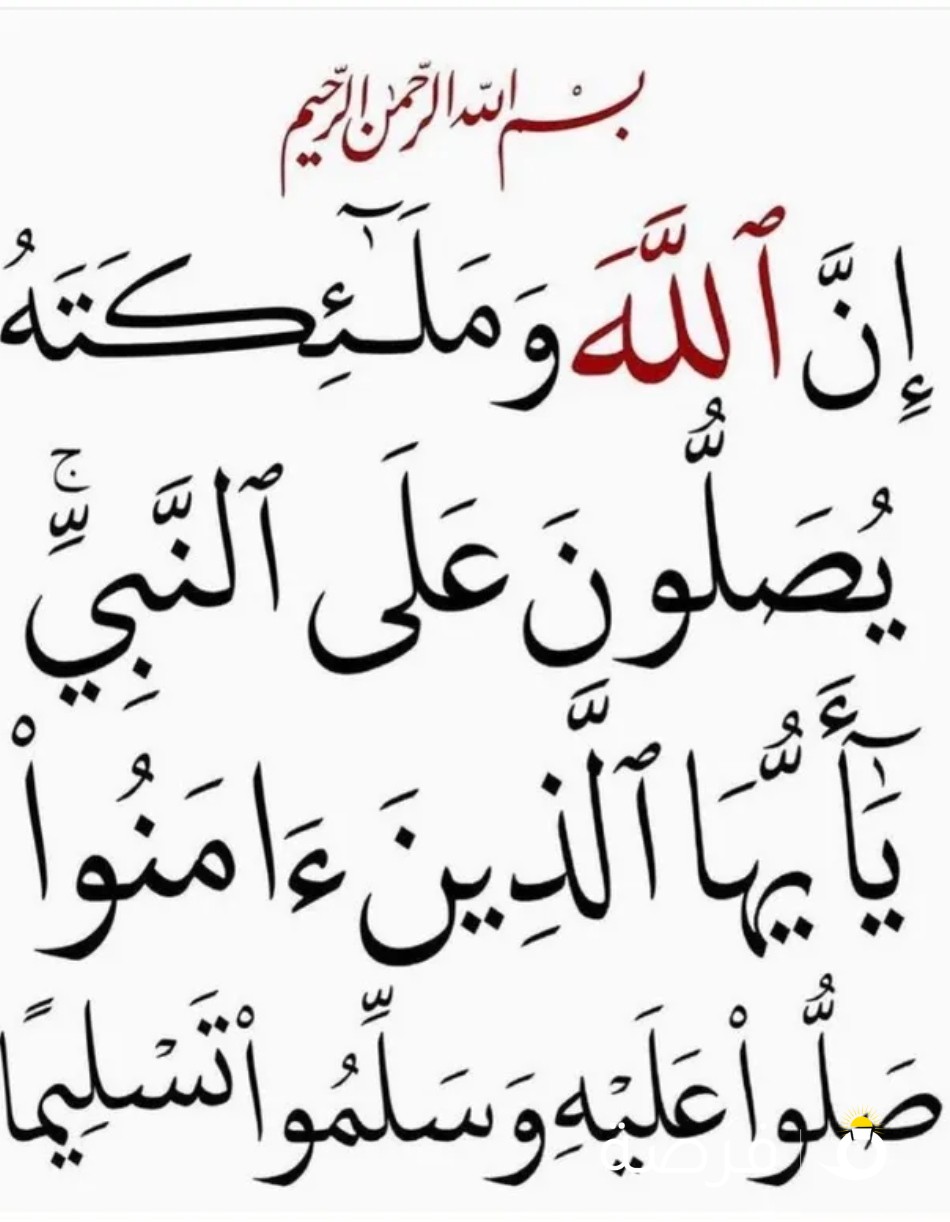 بسم الله الرحمٰن الرحيم
إِنَّ ٱللَّهَ وَمَلَـٰٓئِكَتَهُ
يُصَلُّونَ عَلَى ٱلنَّبِيِّۚ
يَـٰٓأَيُّهَا ٱلَّذِينَ ءَامَنُوا۟
صَلُّوا۟ عَلَيْهِ وَسَلِّمُوا۟ تَسْلِيمًا
فرصة